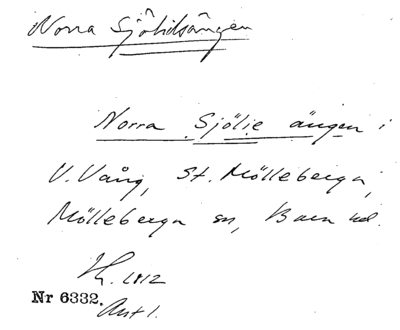 Norra Sjölidsängen
Norra Sjölie ängen i
V. Vång, St. Mölleberga,
Mölleberga sn, Bara hd.
1812
Nr 6332.
Akt 1.